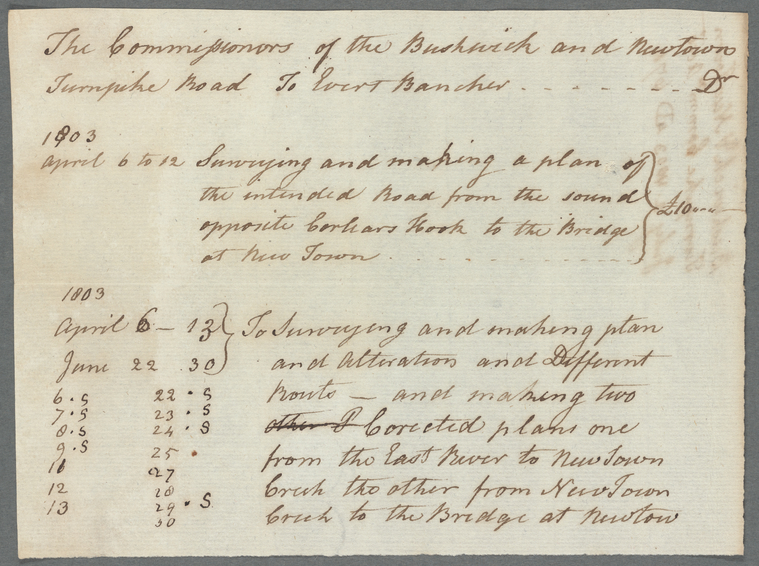 The Commissioners of the Bushwick and Newtown
Turnpike Road To Evert Bancker - - - - - - - - Dr
1803
April 6 to 12 Surveying and making a plan of
the intended Road from the sound
opposite Corlears Hook to the Bridge £10
at New Town - - - - - - - - - -
1803
April 6 — 13 To Surveying and making plan
June 22 30 and Alteration and Different
6 . S 22 . S Routs — and making two
7 . S 23 . S other P Corected plans one
8 . S 24 . S
9 . S 25 . from the East River to New Town
11 27
12 28 Creek the other from New Town
13 29 . S Creek to the Bridge at Newtow
30